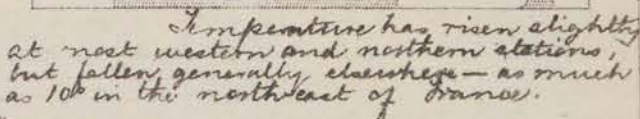 Temperature has risen slightly
at most western and northern stations,
but fallen generally elsewhere — as much
as 10° in the north-east of France.